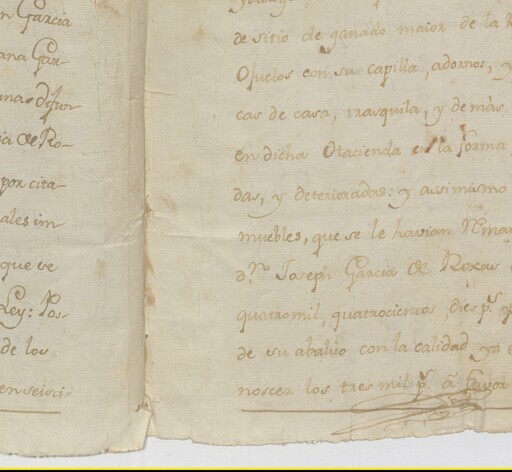 n Garcia
ana Gar-
na difun-
ia de Ro-
por cita-
ales im-
que se
Ley: Pos-
de los
en seisci-
de sitio de ganado maior de la
Ojuelos con su capilla, adornos, y
cas de casa, trasquila, y demàs
en dicha Hacienda en la forma
das, y deterioradas: y assimismo
muebles, que se le havian Rema
d.n Joseph Garcia de Roxas
quatromil, quatrocientos, dies p.s y
de su abaluo con la calidad ya
nocer los tres mil p.s â favor